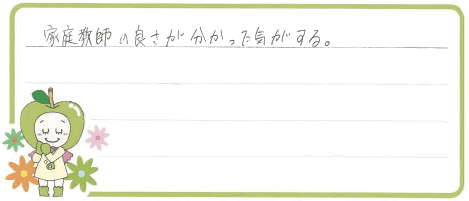 家庭教師の良さが分かった気がする。